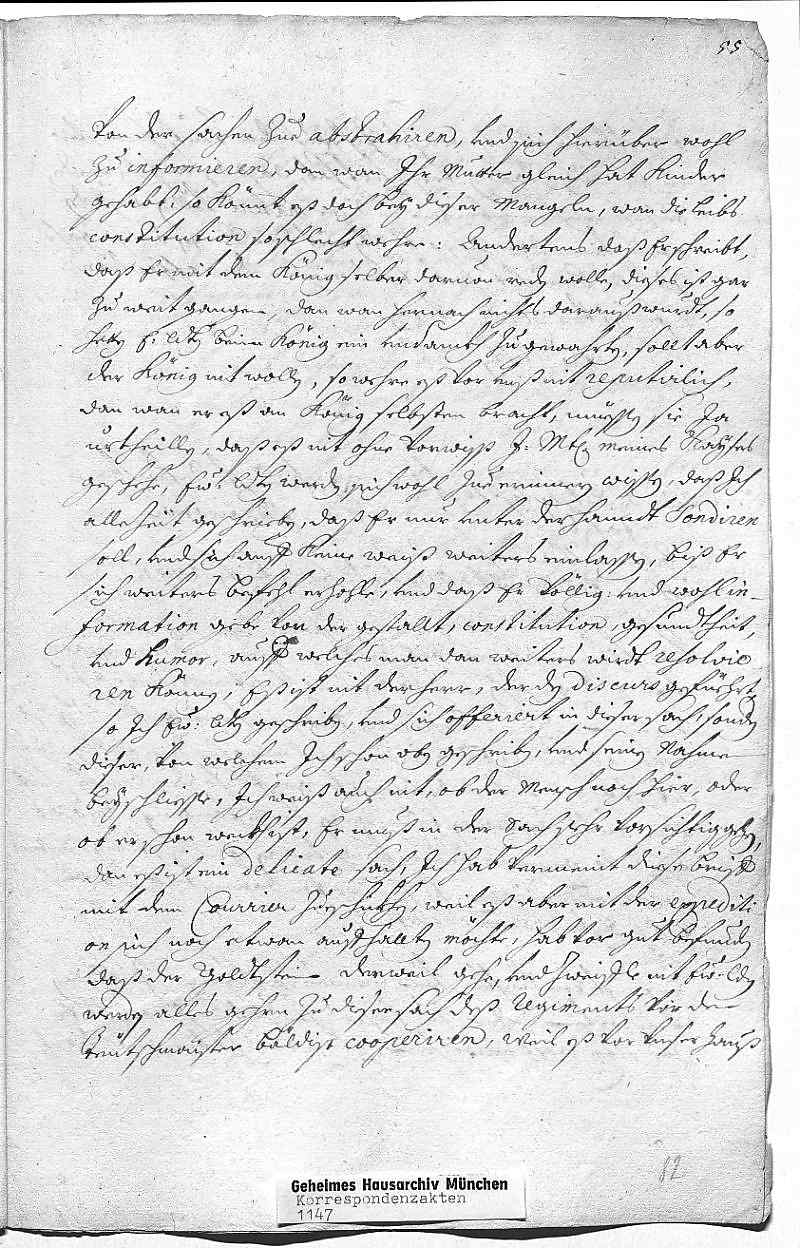 55
Von der sachen Zue abstrahiren, und sich hierüber wohl
Zu informieren, dan wan Ihr Mutter gleich hat Kinder
gehabt, so könnt eß doch bey dieser Mangeln, wan die leibs
constitution so schlecht wehre: Andertens daß Er schreibt,
daß Er mit dem König selber darvon reden wolle, dieses ist gar
Zu weit gangen, dan wan hernach nichts darauß wurdt, so
hetten E: Ld: beim König ein Zugewahrten, sollt aber
der König nit wollen, so wehre eß vor unß nit reputirlich,
dan wan er eß an König selbsten bracht, müesten sie Ja
urtheillen, daß eß nit ohne Vorwissen I: Mt: meines Kaysers
geschehe, Ew: Ld: werden sich wohl Zue erinnern wissen, daß Ich
alle Zeit geschrieben, daß Er nur unter der handt Sondiren
soll, und sich auf Keine weiß weiters einlassen, biß Er
sich weiters befehl erhohle, und daß Er völlig: und wohl in-
formation gebe von der gestallt, constitution, gesundtheit,
und humor, auff welches man dan weiters wirdt resolvie
ren Können, Eß ist nit der herr, der den discurs geführt,
so Ich Ew: Ld: geschrieben, und sich offeriert in dieser sach, sondern
dieser, von welchem Ich schon oben geschrieben, und seinen Nahmen
beyschliesse, Ich weiß auch nit, ob der Mensch noch hier, oder
ob er schon weckh ist, Er muß in der Sach sehr vorsichtig gehen,
dan eß ist ein delicate sach, Ich hab vermeint diese brieff
mit dem Courrier Zueschickhen, weil eß aber mit der expediti
on sich noch etwan auffhallten möchte, hab vor guet befunden
daß der Goldtstein derweil gehe, und Zweiffle nit Ew: Ld:
werden alles gehrn Zu diser sach deß regiments vor den
Teütschmaister baldist cooperiren, weil eß vor unser Hauß
82
Geheimes Hausarchiv München
Korrespondenzakten
1147